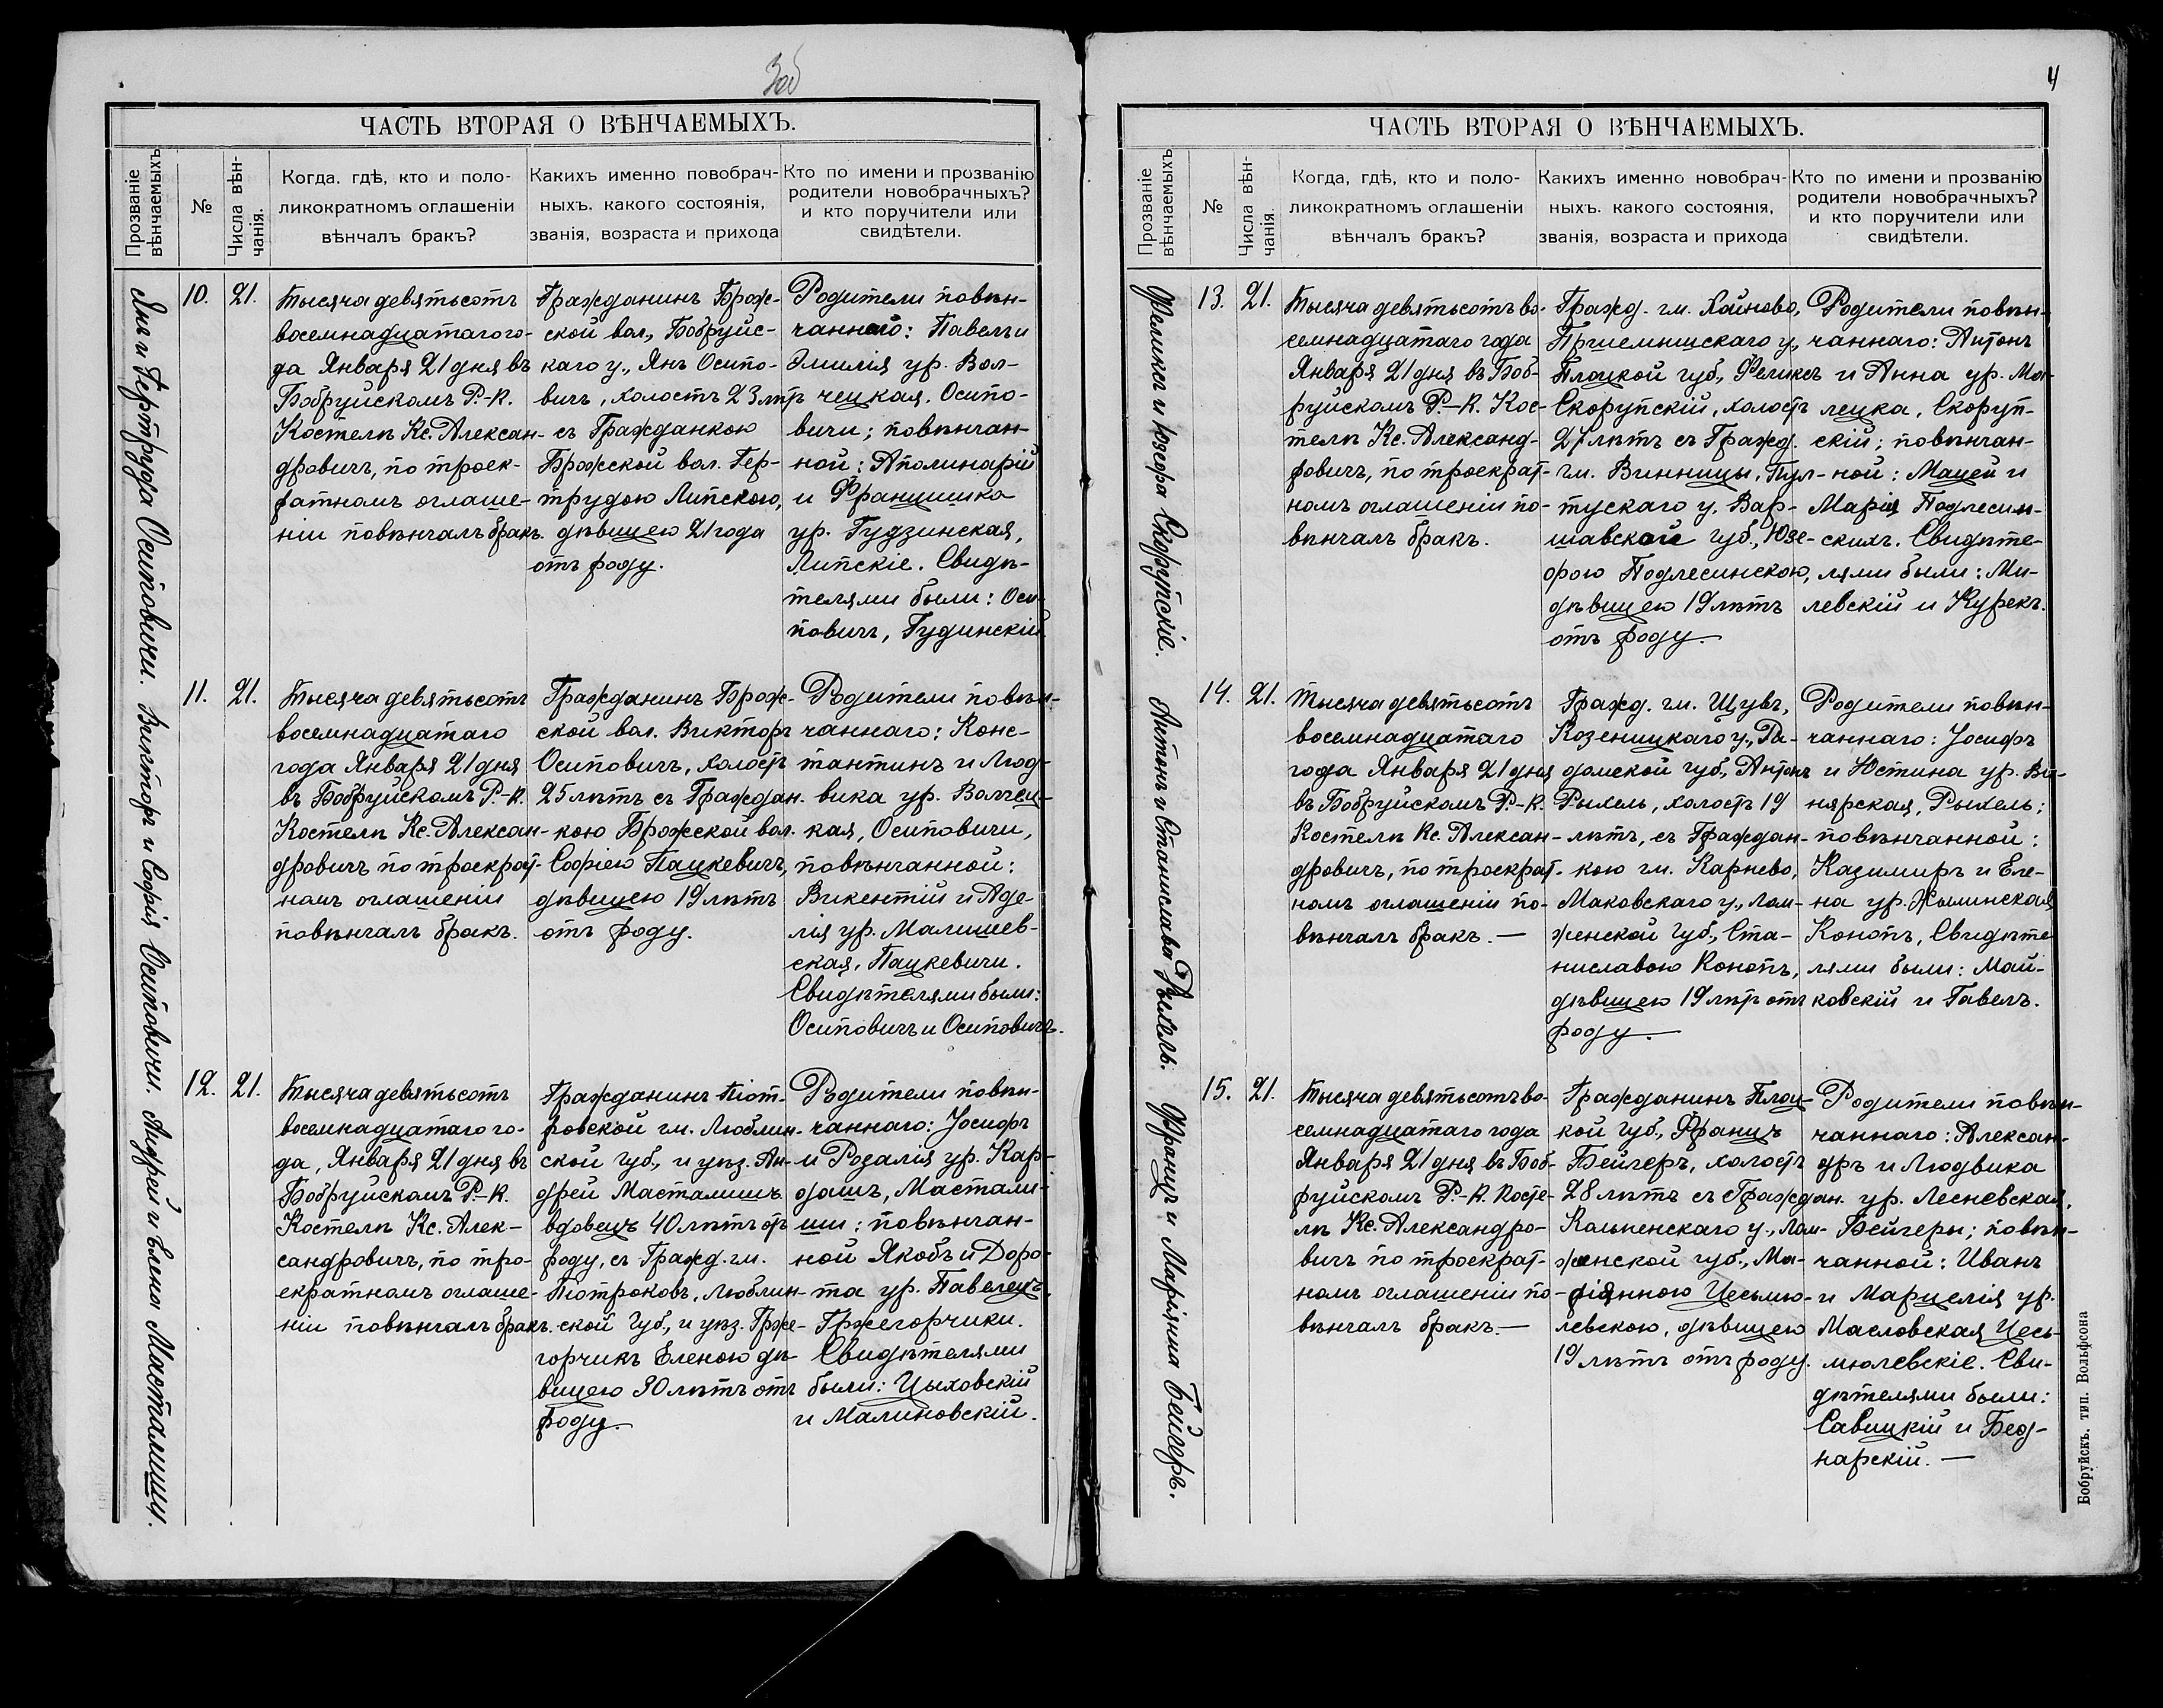 3об
ЧАСТЬ ВТОРАЯ О ВѢНЧАЕМЫХЪ.
Прозваніе
вѣнчаемыхъ
№
Числа вѣн-
чанія.
Когда. гдѣ, кто и поло-
ликократномъ оглашеніи
вѣнчалъ бракъ?
Какихъ именно повобрач-
ныхъ. какого состоянія,
званія, возраста и прихода
Кто по имени и прозванію
родители новобрачныхъ?
и кто поручители или
свидѣтели.
Янъ и Гертруда Осиповичи.
10.
21.
Тысяча девятьсотъ
восемнадцатаго го-
да Января 21 дня въ
Бобруйскомъ Р.-К.
Костелѣ Кс. Алексан-
дровичъ, по троек-
ратномъ оглаше-
ніи повѣнчалъ бракъ.
Гражданинъ Брож-
ской вол., Бобруйс-
каго у., Янъ Осипо-
вичъ, холостъ 23 лѣтъ
съ Гражданкою
Брожской вол. Гер-
трудою Липскою,
дѣвицею 21 года
отъ роду.
Родители повѣн-
чаннаго: Павелъ и
Эмилія ур. Вол-
чецкая. Осипо-
вичи; повѣнчан-
ной: Аполинарій
и Францишка
ур. Гудзинская,
Липскіе. Свидѣ-
телями были: Оси-
повичъ, Гудинскій
Викторъ и Софія Осиповичи.
11.
21.
Тысяча девятьсотъ
восемнадцатаго
года Января 21 дня
въ Бобруйскомъ Р.-К.
Костелѣ Кс. Алексан-
дровичъ по троекрат-
номъ оглашеніи
повѣнчалъ бракъ.
Гражданинъ Брож-
ской вол. Викторъ
Осиповичъ, холостъ
25 лѣтъ съ Граждан-
кою Брожской вол.
Софіею Пацкевичъ,
дѣвицею 19 лѣтъ
отъ роду.
Родители повѣн-
чаннаго: Конс-
тантинъ и Люд-
вика ур. Волчец-
кая, Осиповичи,
повѣнчанной:
Викентій и Аде-
лія ур. Малишев-
ская, Пацкевичи.
Свидѣтелями были:
Осиповичъ и Осиповичъ.
Андрей и Елена Масталиши.
12.
21.
Тысяча девятьсотъ
восемнадцатаго го-
да, Января 21 дня въ
Бобруйскомъ Р.-К.
Костелѣ Кс. Алек-
сандровичъ, по тро-
екратномъ оглаше-
ніи повѣнчалъ бракъ.
Гражданинъ Піот-
ровской гм. Люблин-
ской губ., и уѣз. Ан-
дрей Масталишъ
вдовецъ 40 лѣтъ отъ
роду, съ Гражд. гм.
Піотроковъ, Люблин-
ской губ., и уѣз. Грже-
горчикъ Еленою дѣ-
вицею 30 лѣтъ отъ
роду.
Родители повѣн-
чаннаго: Іосифъ
и Розалія ур. Кар-
дашъ, Мастали-
ши; повѣнчан-
ной Якобъ и Доро-
та ур. Павелецъ,
Гржегорчики.
Свидѣтелями
были: Цыховскій
и Малиновскій.
4
ЧАСТЬ ВТОРАЯ О ВѢНЧАЕМЫХЪ.
Прозваніе
вѣнчаемыхъ
№
Числа вѣн-
чанія.
Когда, гдѣ, кто и поло-
ликократномъ оглашеніи
вѣнчалъ бракъ?
Какихъ именно новобрач-
ныхъ. какого состоянія,
званія, возраста и прихода
Кто по имени и прозванію
родители новобрачныхъ?
и кто поручители или
свидѣтели.
Феликсъ и Юзефа Скорупскіе.
13.
21.
Тысяча девятьсотъ во-
семнадцатаго года
Января 21 дня въ Боб-
руйскомъ Р.-К. Кос-
телѣ Кс. Александ-
ровичъ, по троекрат-
номъ оглашеніи по-
вѣнчалъ бракъ.
Гражд. гм. Хойново,
Пршемышскаго у.,
Плоцкой губ., Феликсъ
Скорупскій, холостъ
27 лѣтъ съ Гражд.
гм. Винницы, Пул-
тускаго у. Вар-
шавской губ., Юзе-
фою Подлесинскою,
дѣвицею 19 лѣтъ
отъ роду.
Родители повѣн-
чаннаго: Антонъ
и Анна ур. Мо-
лецка, Скоруп-
скій; повѣнчан-
ной: Мацей и
Марія Подлесин-
скихъ. Свидѣте-
лями были: Ми-
левскій и Курекъ.
Антонъ и Станислава Рыхель.
14.
21.
Тысяча девятьсотъ
восемнадцатаго
года Января 21 дня
въ Бобруйскомъ Р.-К.
Костелѣ Кс. Алексан-
дровичъ, по троекрат-
номъ оглашеніи по-
вѣнчалъ бракъ. —
Гражд. гм. Щувъ,
Козеницкаго у., Ра-
домской губ., Антонъ
Рыхель, холостъ 19
лѣтъ, съ Граждан-
кою гм. Карнево,
Маковскаго у., Лом-
женской губ., Ста-
ниславою Конопъ,
дѣвицею 19 лѣтъ отъ
роду.
Родители повѣн-
чаннаго: Іосифъ
и Юстина ур. Ви-
нярская, Рыхель;
повѣнчанной:
Казимиръ и Еле-
на ур. Жылинская
Конопъ, Свидѣте-
лями были: Май-
ковскій и Гавелъ.
Францъ и Маріянна Бейгеръ.
15.
21.
Тысяча девятьсотъ во-
семнадцатаго года
Января 21 дня въ Боб-
руйскомъ Р.-К. Косте-
лѣ Кс. Александро-
вичъ по троекрат-
номъ оглашеніи по-
вѣнчалъ бракъ. —
Гражданинъ Плоц-
кой губ., Францъ
Бейгеръ, холостъ
28 лѣтъ съ Граждан.
Кольненскаго у., Лом-
женской губ., Ма-
ріянною Цесьмю-
левскою, дѣвицею
19 лѣтъ отъ роду.
Родители повѣн-
чаннаго: Алексан-
дръ и Людвика
ур. Лесневская,
Бейгеры; повѣн-
чанной: Иванъ
и Марцелія ур.
Масловская Цесь-
мюлевскіе. Сви-
дѣтелями были:
Савицкій и Бед-
нарскій. —
Бобруйскъ. тип. Вольфсона